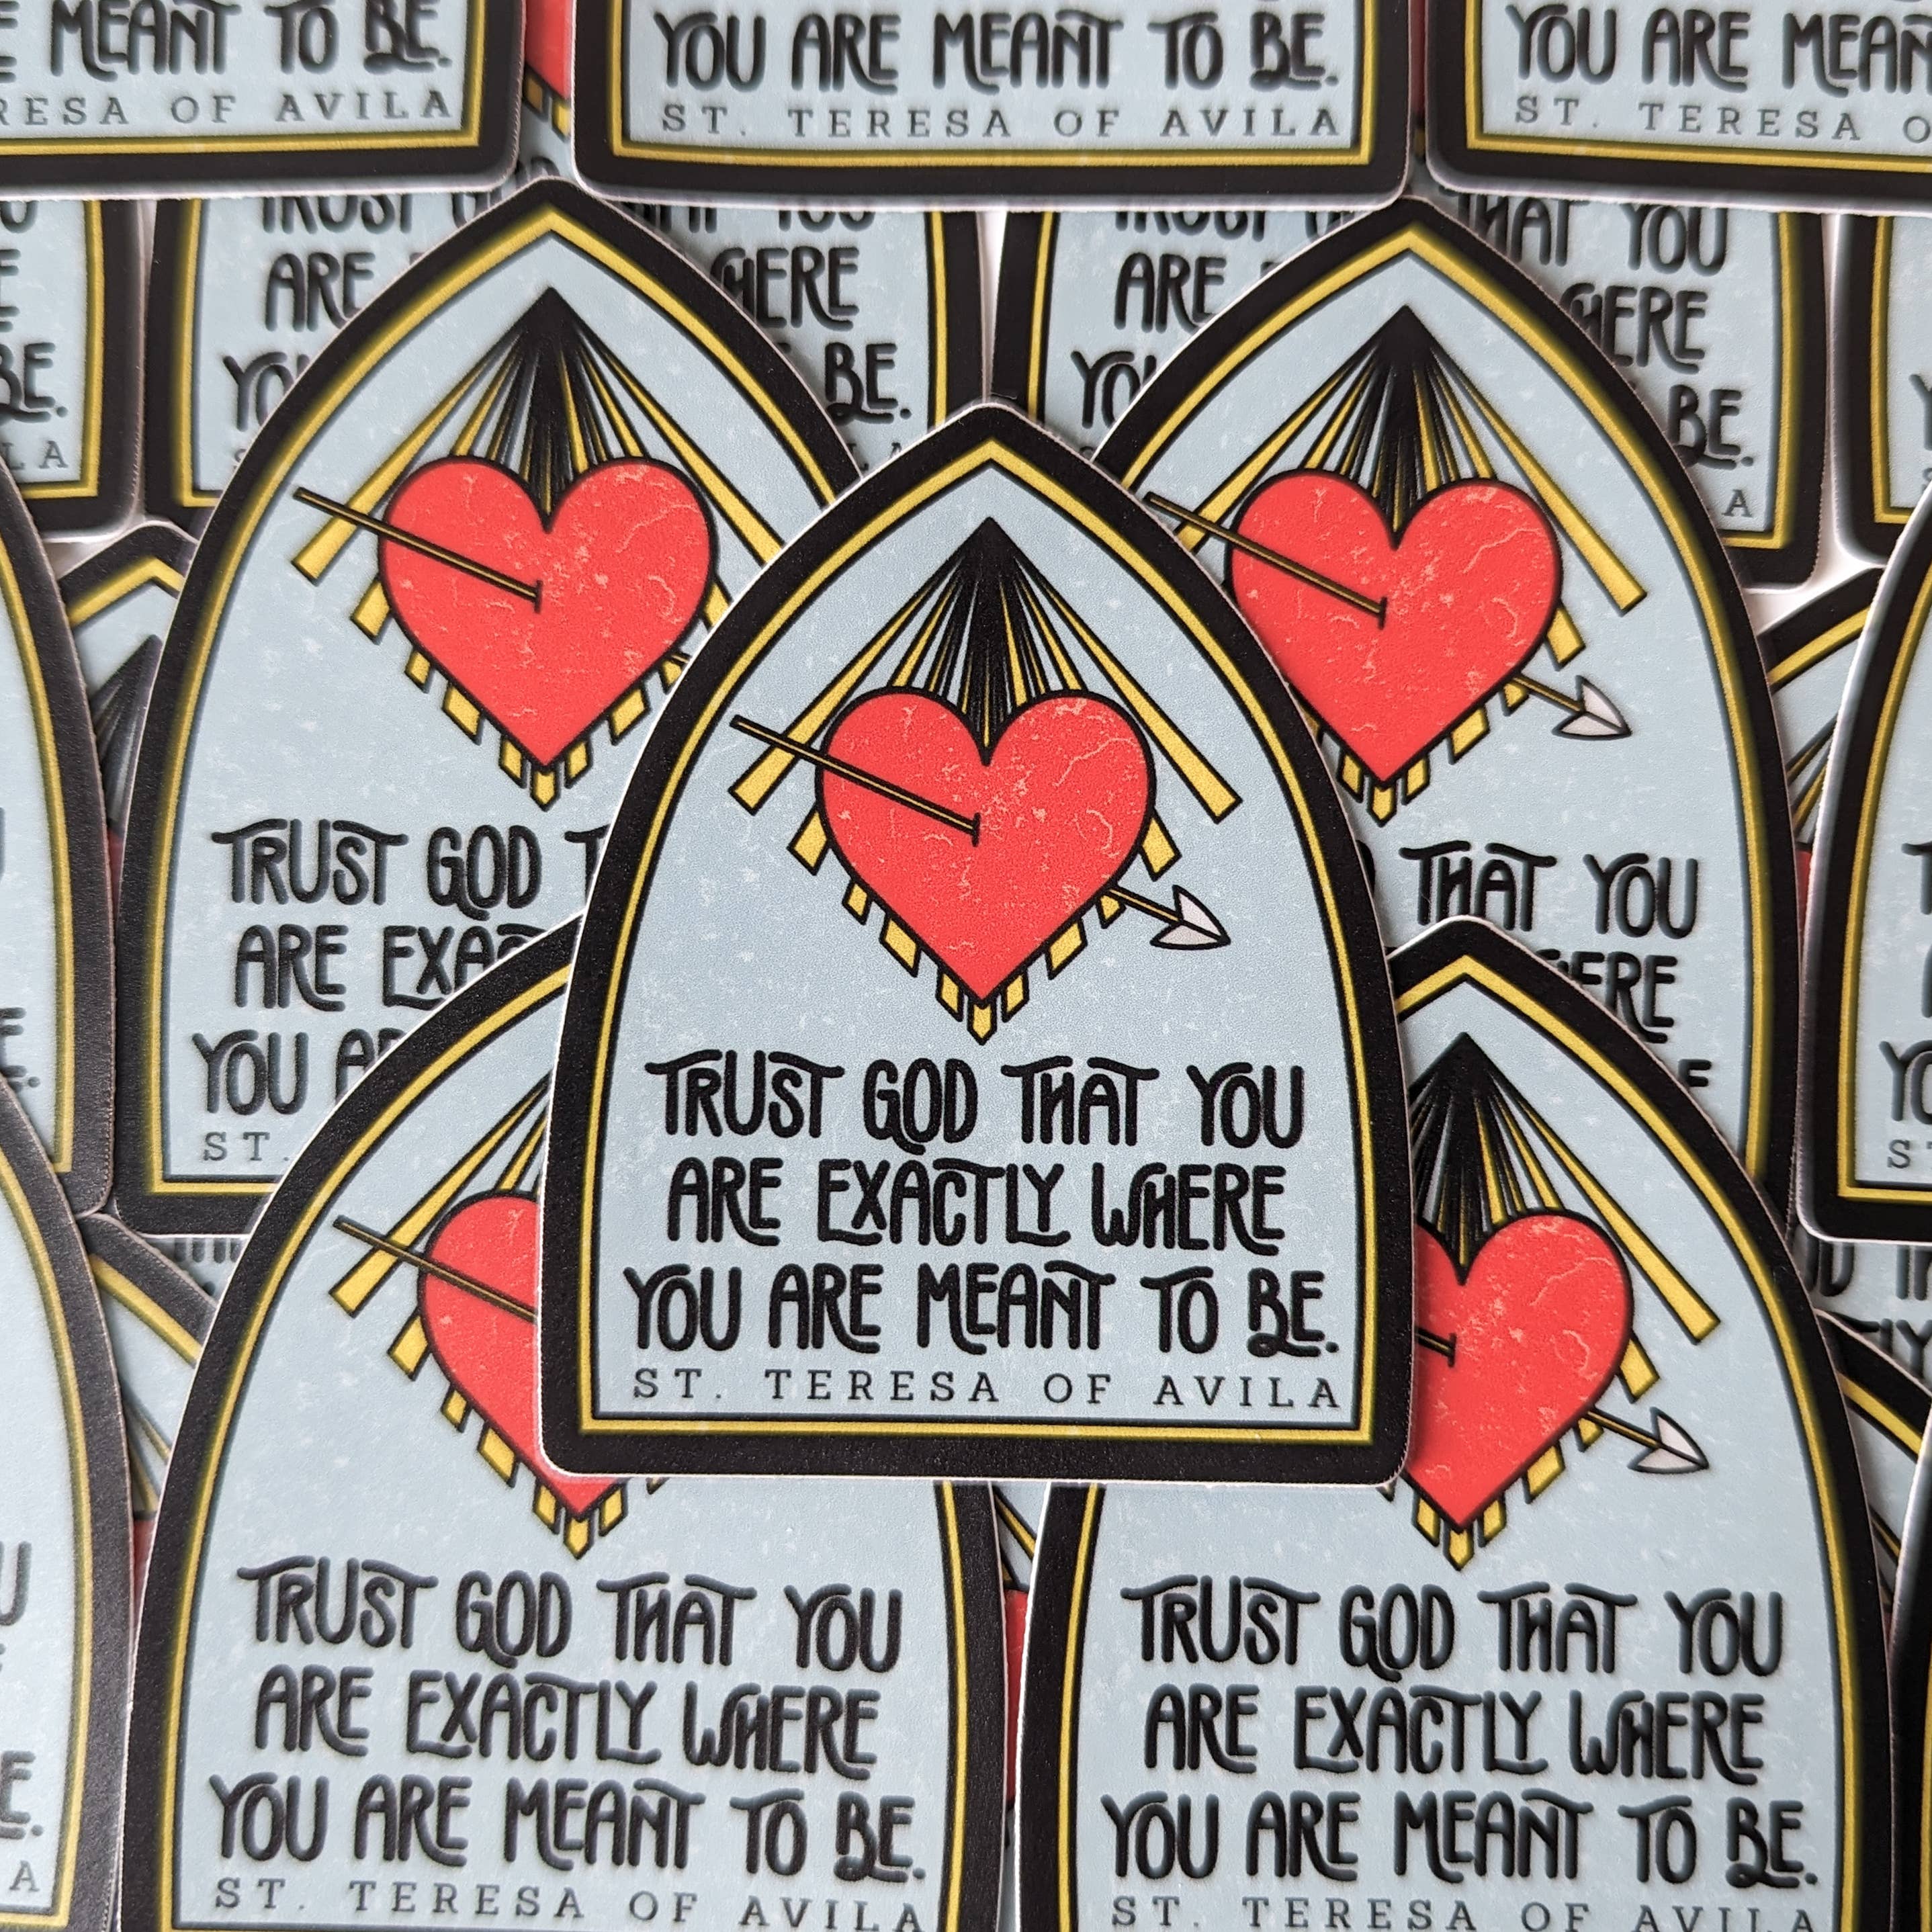 MEANT TO BE.
OF AVILA
YOU ARE MEANT TO BE.
ST. TERESA OF AVILA
YOU ARE
ST. TERESA
ARE
HERE
BE.
ARE
THAT YOU
BE.
TRUST GOD
ARE
YOU
ST.
THAT YOU
TRUST GOD THAT YOU
ARE EXACTLY WHERE
YOU ARE MEANT TO BE.
ST. TERESA OF AVILA
TRUST GOD THAT YOU
ARE EXACTLY WHERE
YOU ARE MEANT TO BE.
ST. TERESA OF AVILA
TRUST GOD THAT YOU
ARE EXACTLY WHERE
YOU ARE MEANT TO BE.
ST. TERESA OF AVILA